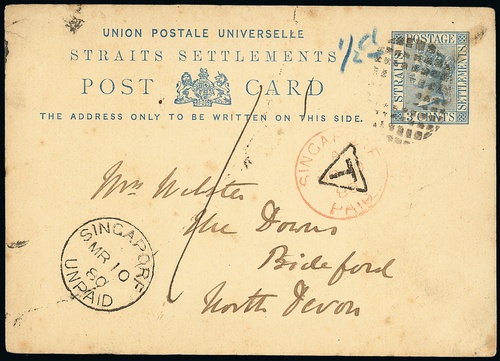 UNION POSTALE UNIVERSELLE
STRAITS SETTLEMENTS
POST CARD
THE ADDRESS ONLY TO BE WRITTEN ON THIS SIDE.
1/2 d
POSTAGE
STRAITS
SETTLEMENTS
3 CENTS
SINGAPORE
PAID
T
Mrs Webster
The Downs
Bideford
North Devon
SINGAPORE
MR 10
80
UNPAID